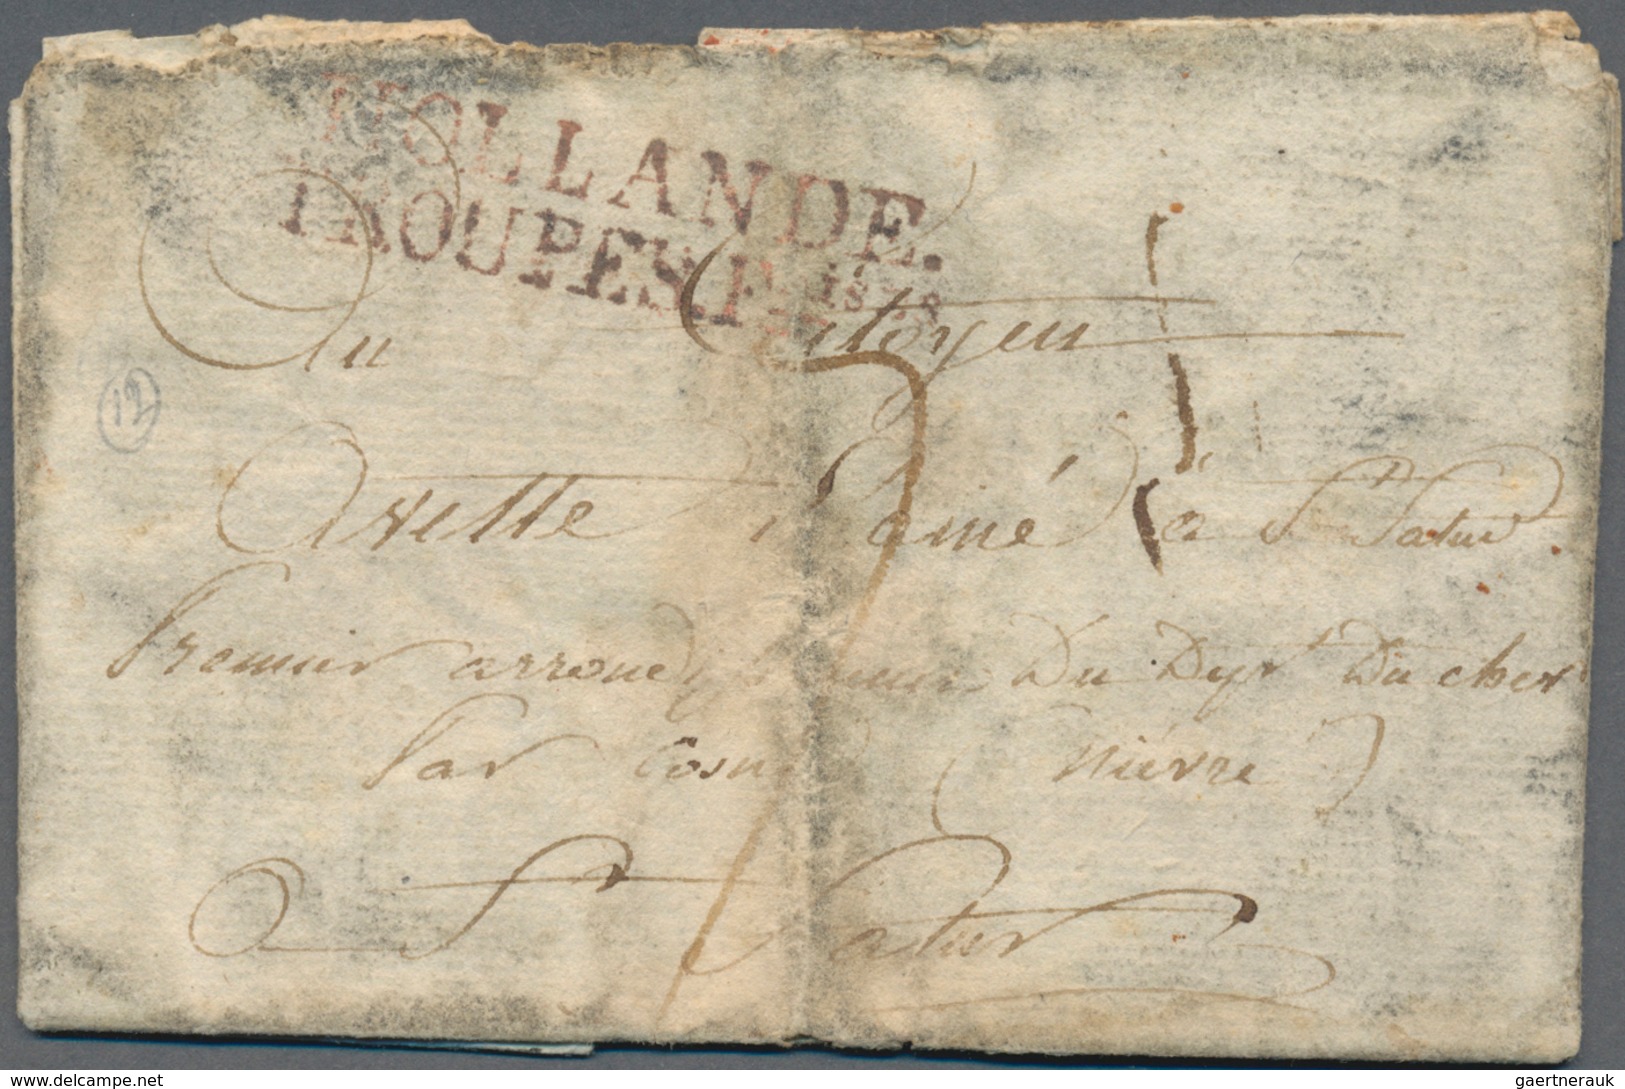 HOLLANDE.
TROUPES F.ISES
Au Citoyen
12
Vvette L'ainé à St Satur
Premier arrondissement Du Dept Du cher
Par Cosne (nièvre)
A St Satur
© delcampe.net
gaertnerauk